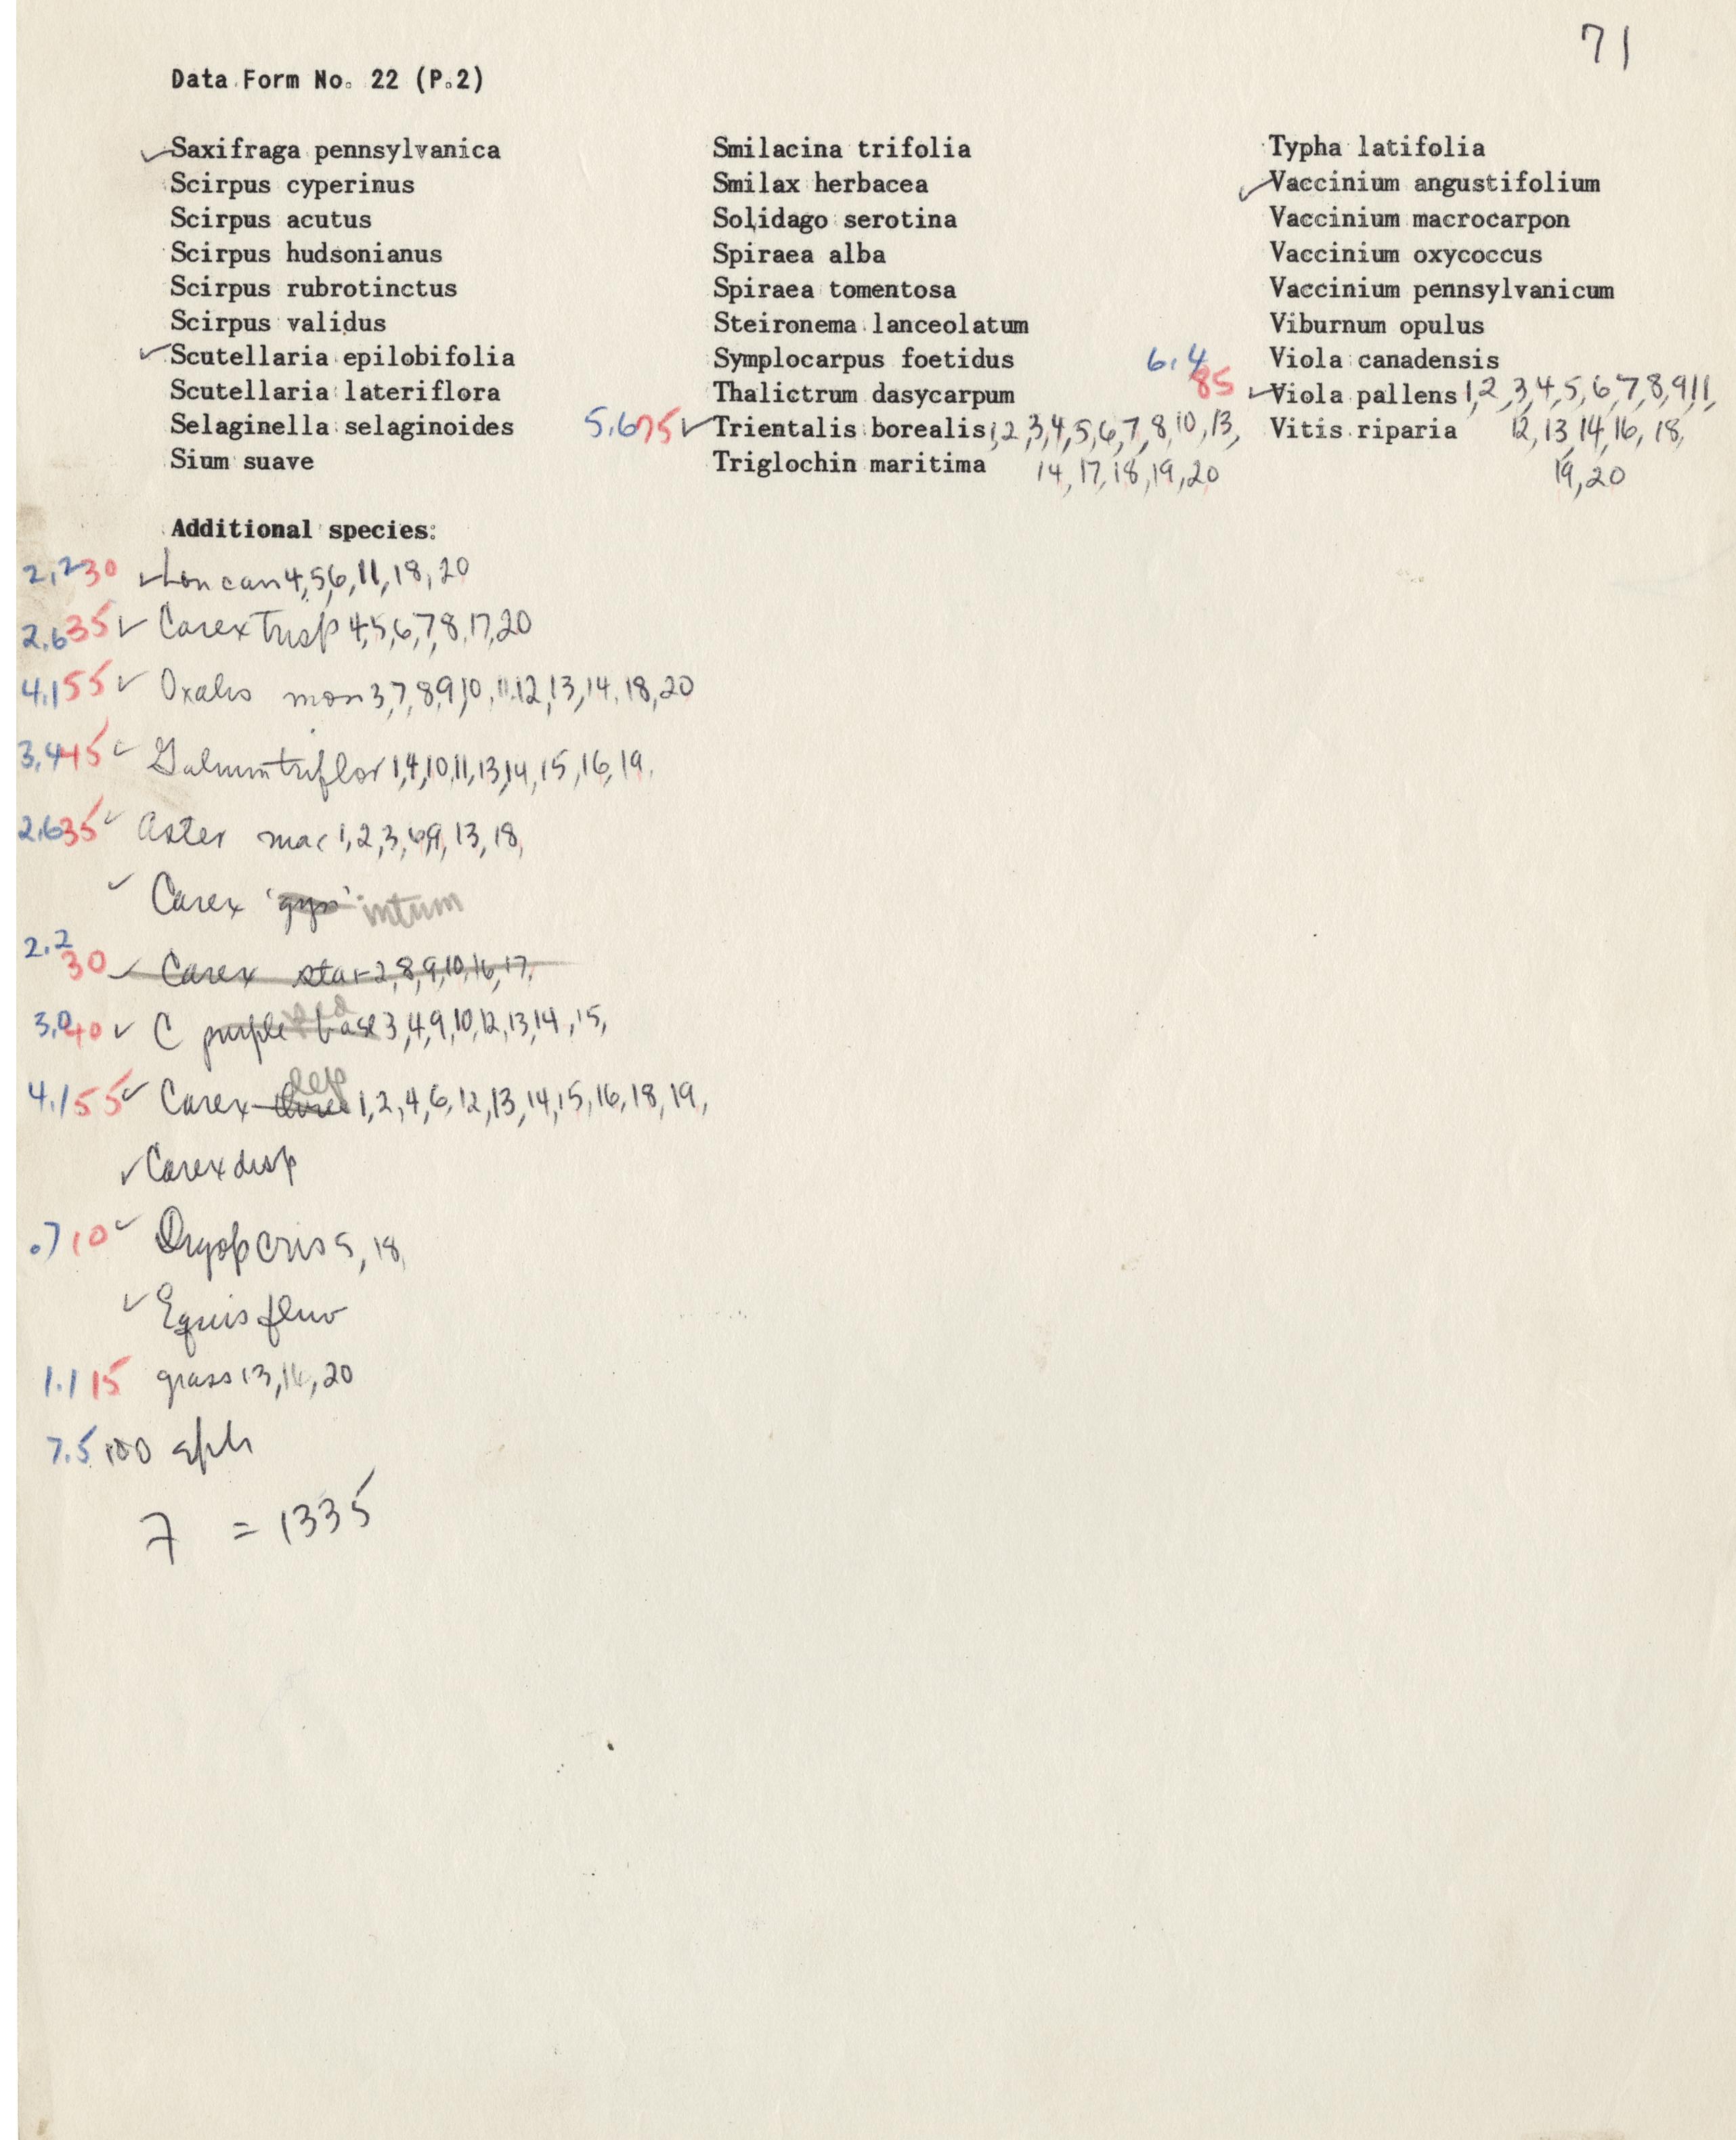 71
Data Form No. 22 (P.2)
✓ Saxifraga pennsylvanica
Scirpus cyperinus
Scirpus acutus
Scirpus hudsonianus
Scirpus rubrotinctus
Scirpus validus
✓ Scutellaria epilobifolia
Scutellaria lateriflora
Selaginella selaginoides
Sium suave
Smilacina trifolia
Smilax herbacea
Solidago serotina
Spiraea alba
Spiraea tomentosa
Steironema lanceolatum
Symplocarpus foetidus
Thalictrum dasycarpum
5.6 75 ✓ Trientalis borealis 1,2,3,4,5,6,7,8,10,13,
Triglochin maritima 14,17,18,19,20
Typha latifolia
✓ Vaccinium angustifolium
Vaccinium macrocarpon
Vaccinium oxycoccus
Vaccinium pennsylvanicum
Viburnum opulus
Viola canadensis
6.4 85 ✓ Viola pallens 1,2,3,4,5,6,7,8,9,11,
Vitis riparia 12,13,14,16,18,
19,20
Additional species:
2.2 30 ✓ Lon can 4,5,6,11,18,20
2.6 35 ✓ Carex trisp 4,5,6,7,8,17,20
4.1 55 ✓ Oxalis mon 3,7,8,9,10,11,12,13,14,18,20
3.4 45 ✓ Galium triflor 1,4,10,11,13,14,15,16,19,
2.6 35 ✓ Aster mac 1,2,3,6,9,13,18,
✓ Carex 'gyn' intum
2.2 30 ✓ Carex star 2,8,9,10,16,17,
3.0 40 ✓ C purple base 3,4,9,10,12,13,14,15,
4.1 55 ✓ Carex lep 1,2,4,6,12,13,14,15,16,18,19,
✓ Carex disp
.7 10 ✓ Dryop cris 5,18,
✓ Equis fluv
1.1 15 grass 13,16,20
7.5 100 sph
7 = 1335